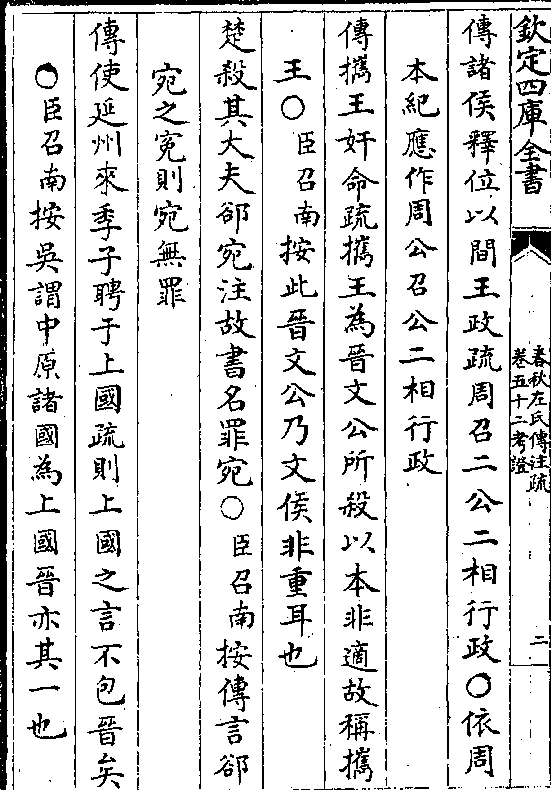 欽定四庫全書
春秋左氏傳注疏
卷五十二考證
二
傳諸侯釋位以間王政疏周召二公二相行政○依周
本紀應作周公召公二相行政
傳攜王奸命疏攜王為晉文公所殺以本非適故稱攜
王○臣召南按此晉文公乃文侯非重耳也
楚殺其大夫郤宛注故書名罪宛○臣召南按傳言郤
宛之寃則宛無罪
傳使延州來季子聘于上國疏則上國之言不包晉矣
○臣召南按吳謂中原諸國為上國晉亦其一也